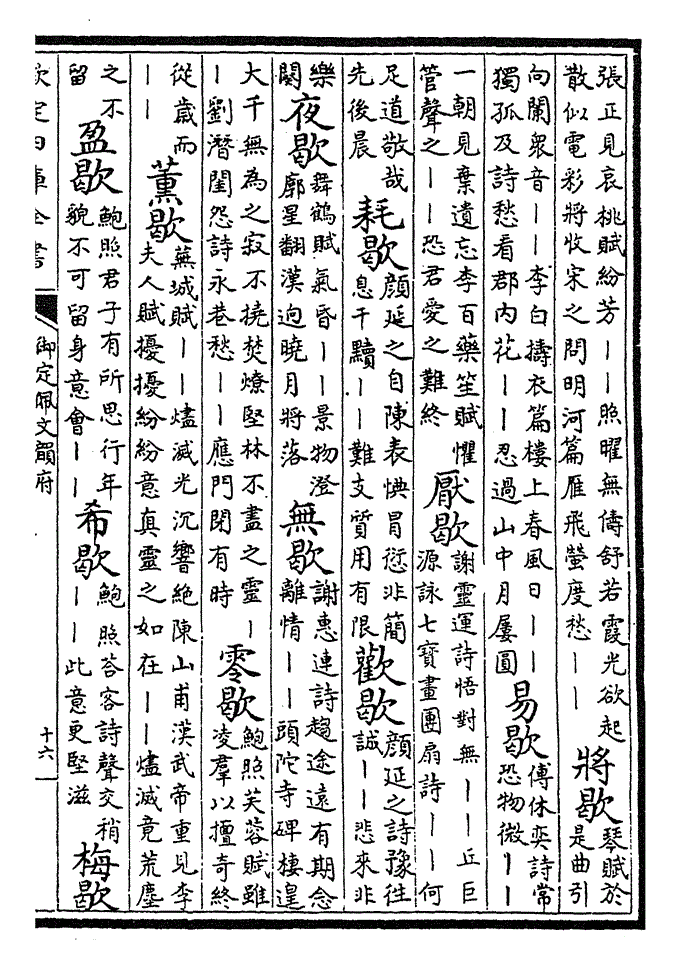 張正見哀桃賦紛芳——照曜無儔舒若霞光欲起
散似電彩將收宋之問明河篇雁飛螢度愁——
將歇
琴賦於
是曲引
向闌衆音——李白擣衣篇樓上春風日——
獨孤及詩愁看郡内花——忍過山中月屢圓
易歇
傅休奕詩常
恐物微——
一朝見棄遺忘李百藥笙賦懼
管聲之——恐君愛之難終
厭歇
謝靈運詩悟對無——丘巨
源詠七寶畫團扇詩——何
足道敬哉
先後晨
耗歇
顔延之自陳表㥏冒愆非簡
息干黷——難支質用有限
歡歇
顔延之詩豫往
誠——悲來非
樂
闋
夜歇
舞鶴賦氣昏——景物澄
廓星翻漢迥曉月將落
無歇
謝惠連詩趨途遠有期念
離情——頭陀寺碑棲遑
大千無為之寂不撓焚燎堅林不盡之靈—
—劉潛閨怨詩永巷愁——應門閉有時
零歇
鮑照芙蓉賦雖
凌羣以擅奇終
從歲而
——
薰歇
蕪城賦——燼滅光沉響絶陳山甫漢武帝重見李
夫人賦擾擾紛紛意真靈之如在——燼滅竟荒塵
之不
留
盈歇
鮑照君子有所思行年
貌不可留身意會——
希歇
鮑照荅客詩聲交稍
——此意更堅滋
梅歇
欽定四庫全書
御定佩文韻府
十六